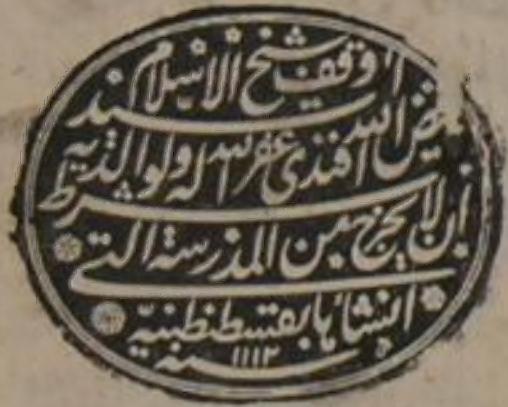 اوقف شيخ الاسلام السيد
فيض الله افندى غفر الله له ولوالديه
بشرط ان لا يخرج من المدرسة التى
انشأها بقسطنطينية
سنه ١١١٢